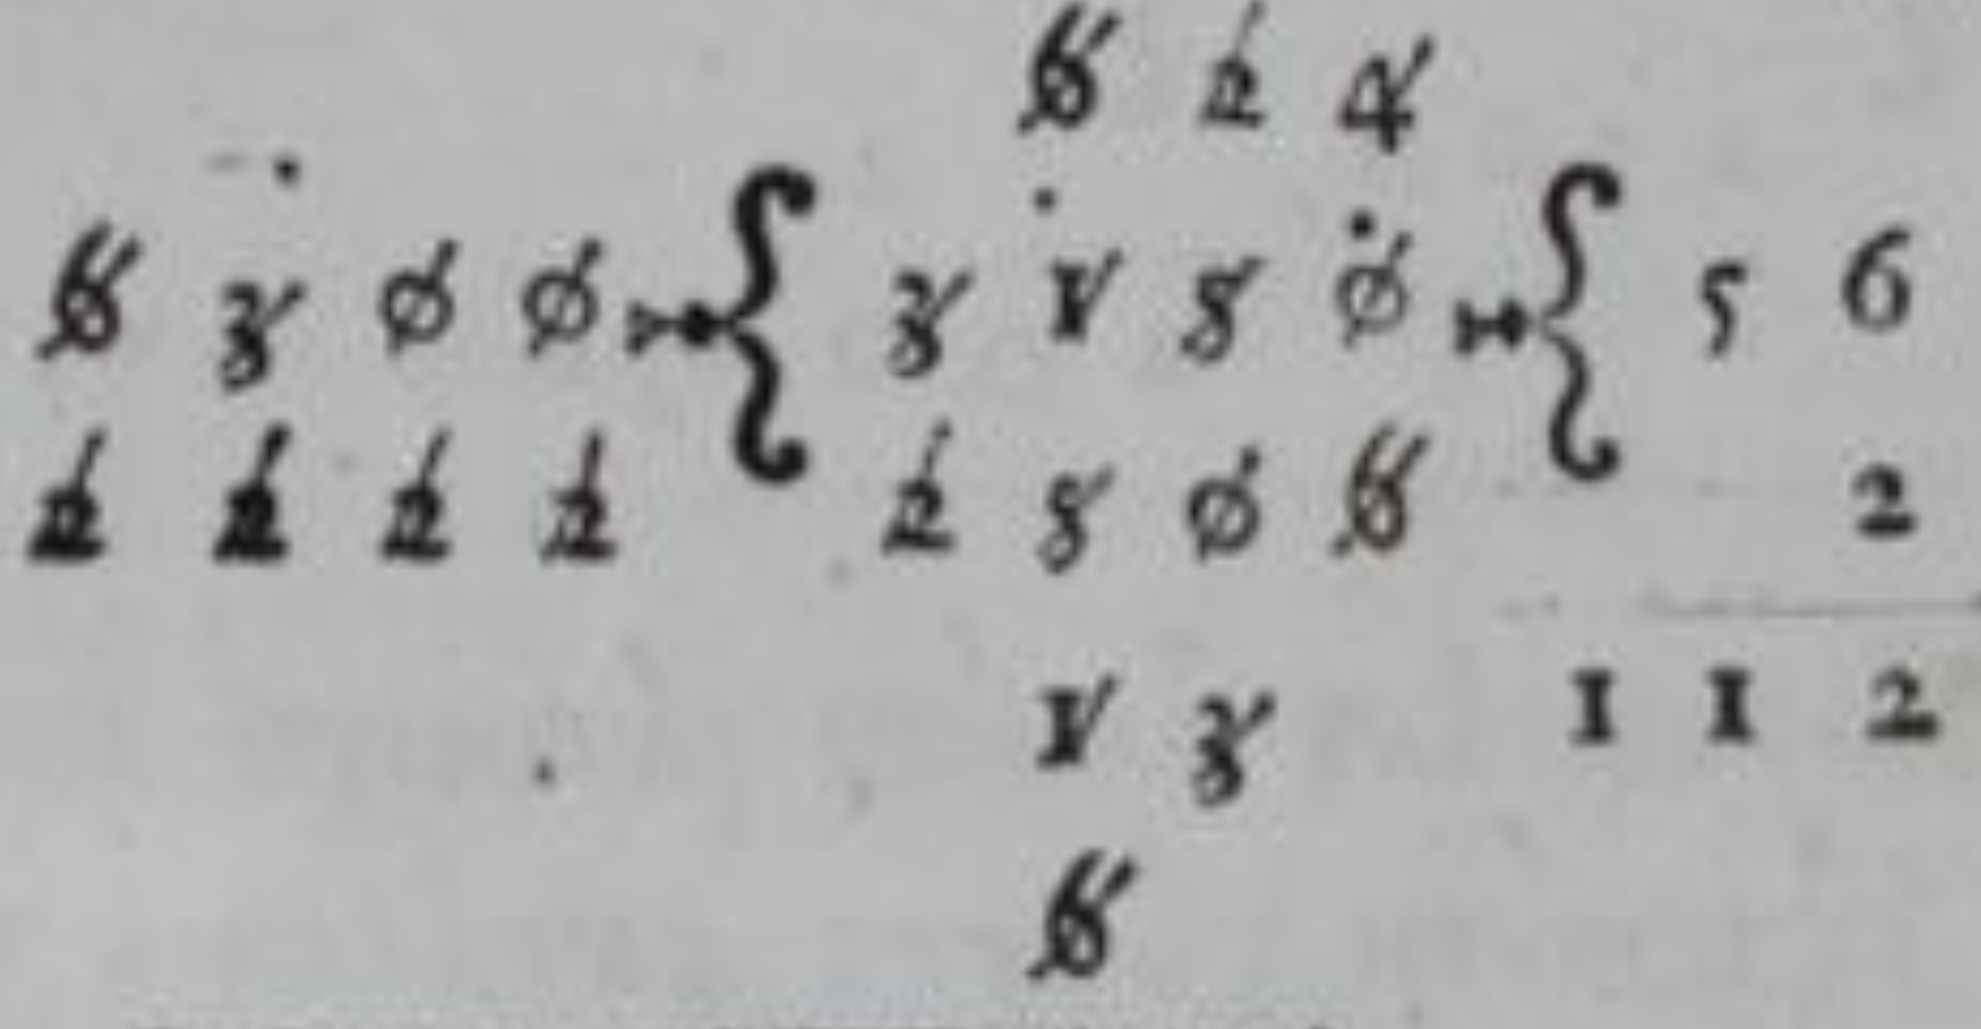 6 2 4
6 3 0 0 { 3 1 5 0 { 5 6
2 2 2 2 2 5 0 6 2
1 3 1 1 2
6